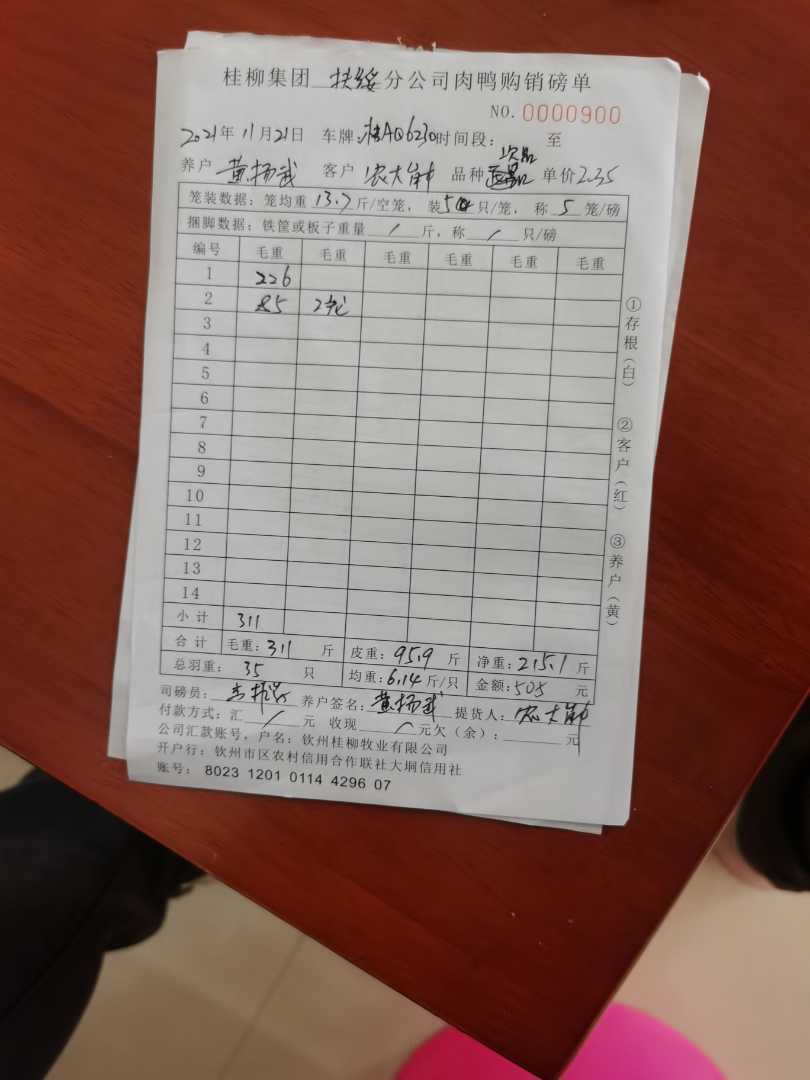 桂柳集团 扶绥 分公司肉鸭购销磅单
NO. 0000900
2021年 11月 21日 车牌: 桂AQ6230 时间段: 至
次品
养户 黄扬武 客户 农大 品种 单价 2.35
笼装数据: 笼均重 13.7 斤/空笼, 装 5 只/笼, 称 5 笼/磅
捆脚数据: 铁筐或板子重量 / 斤, 称 / 只/磅
编号 毛重 毛重 毛重 毛重 毛重 毛重
1 226
2 85 2笼
3
4
5
6
7
8
9
10
11
12
13
14
小计 311
合计 毛重: 311 斤 皮重: 95.9 斤 净重: 215.1 斤
总羽重: 35 只 均重: 6.14 斤/只 金额: 505 元
司磅员: 养户签名: 黄扬武 提货人: 农大
付款方式: 汇 / 元 收现 / 元欠(余): 元
公司汇款账号, 户名: 钦州桂柳牧业有限公司
开户行: 钦州市区农村信用合作联社大垌信用社
账号: 8023 1201 0114 4296 07
①存根(白)
②客户(红)
③养户(黄)